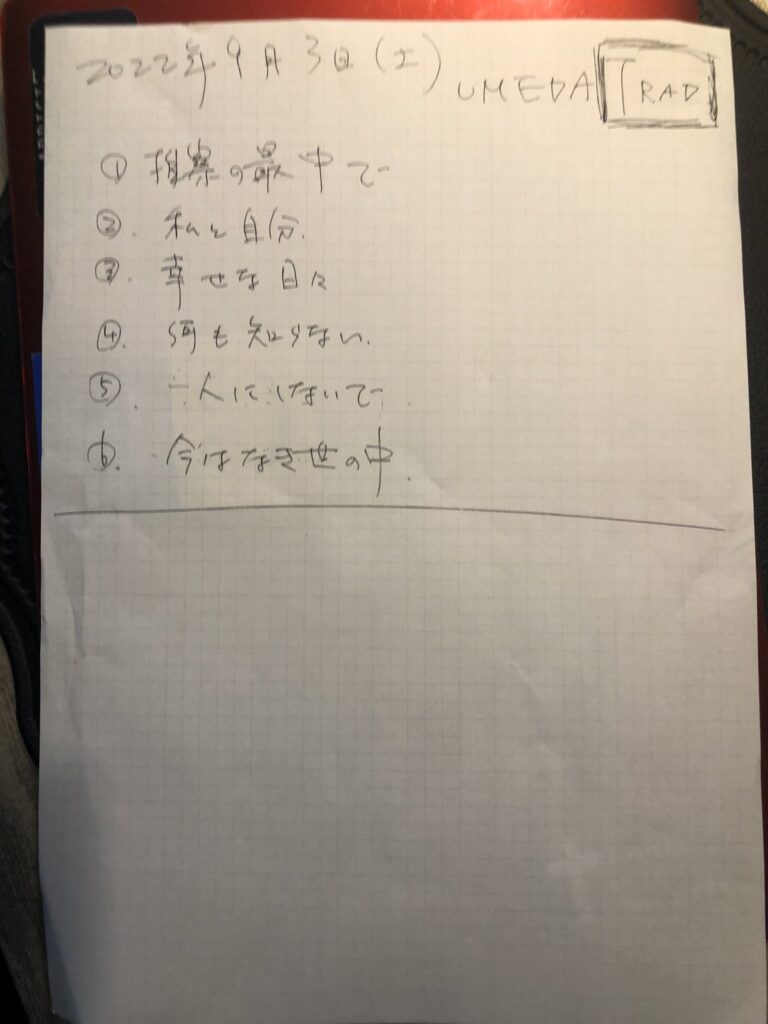 2022年9月3日(土)
UMEDA TRAD
① の最中で
②. 私と自分.
③. 幸せな日々
④. 何も知らない.
⑤. 一人にしないで.
⑥. 今はなき世の中.